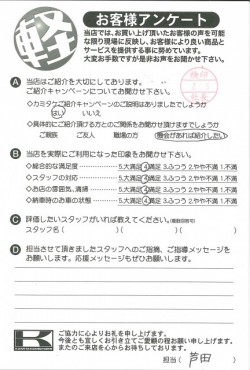 軽
お客様アンケート
当店では、お買い上げ頂いたお客様の声を可能
な限り現場に反映し、お客様により良い商品と
サービスを提供する事に努めています。
大変お手数ですが是非お声をお聞かせ下さい。
検印
Ⓐ 当店はご紹介を大切にしております。
ご紹介キャンペーンについてお聞かせ下さい。
◇カミタケご紹介キャンペーンのご説明はありましたでしょうか
はい いいえ
◇具体的にご紹介頂ける方とのご関係をお聞かせ頂けますでしょうか
ご親族 ご友人 職場の方 機会があれば紹介したい
Ⓑ 当店を実際にご利用になった印象をお聞かせ下さい。
◇総合的な満足度 5.大満足 4.満足 3.ふつう 2.やや不満 1.不満
◇スタッフの対応 5.大満足 4.満足 3.ふつう 2.やや不満 1.不満
◇お店の雰囲気、清掃 5.大満足 4.満足 3.ふつう 2.やや不満 1.不満
◇納車時のお車の状態 5.大満足 4.満足 3.ふつう 2.やや不満 1.不満
Ⓒ 評価したいスタッフがいれば教えてください。(複数回答可)
スタッフ名( )( )( )
Ⓓ 担当させて頂きましたスタッフへのご指摘、ご指導メッセージを
お願いします。応援メッセージもぜひお願いします。
K
ご協力に心よりお礼を申し上げます。
今後とも宜しくお引き立てご愛顧の程お願い申し上げます。
またのご来店を心からお待ちしております。
担当( 芦田 )